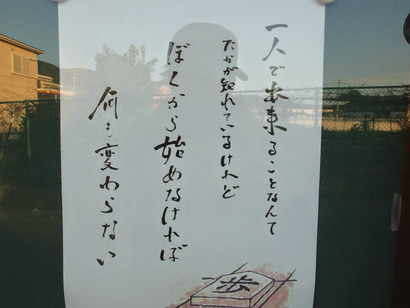 一人で出来ることなんて
たかが知れているけれど
ぼくから始めなければ
何も変わらない
歩